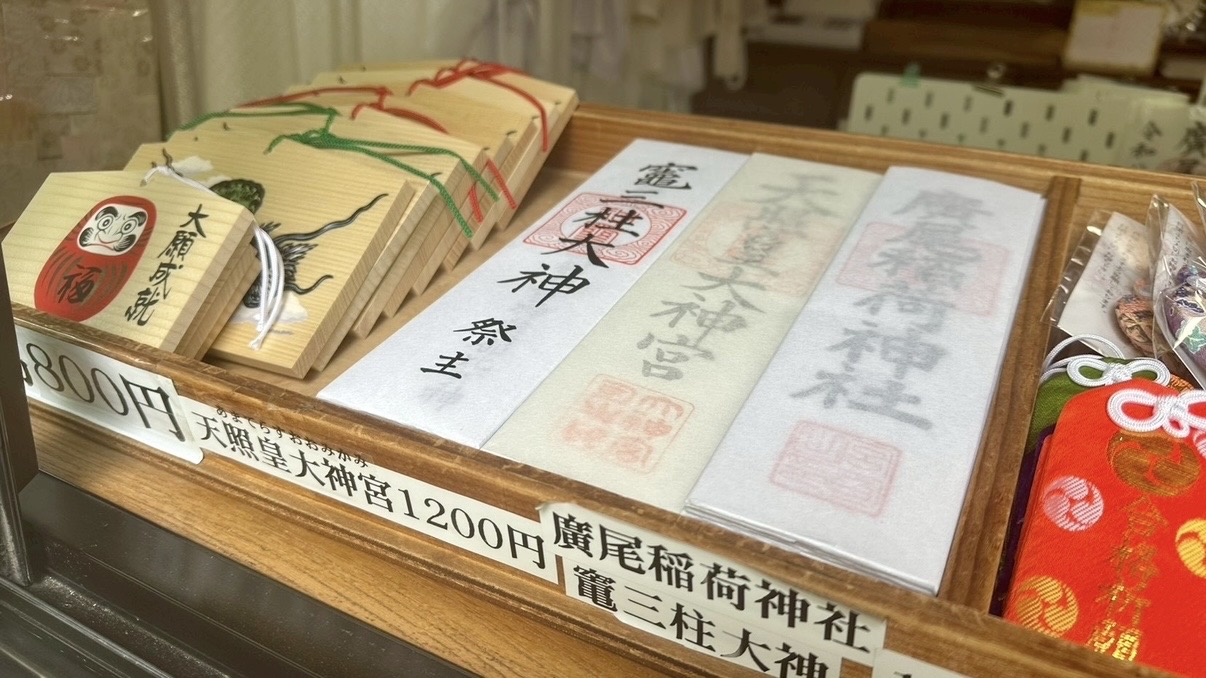 大願成就
福
竈三柱大神
祭主
天照皇大神宮
廣尾稲荷神社
800円
あまてらすおおみかみ
天照皇大神宮1200円
廣尾稲荷神社
竈三柱大神
合格祈願